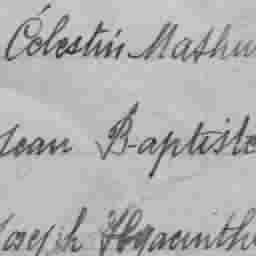 Célestin Mathu
Jean Baptiste
Joseph Hyacinthe